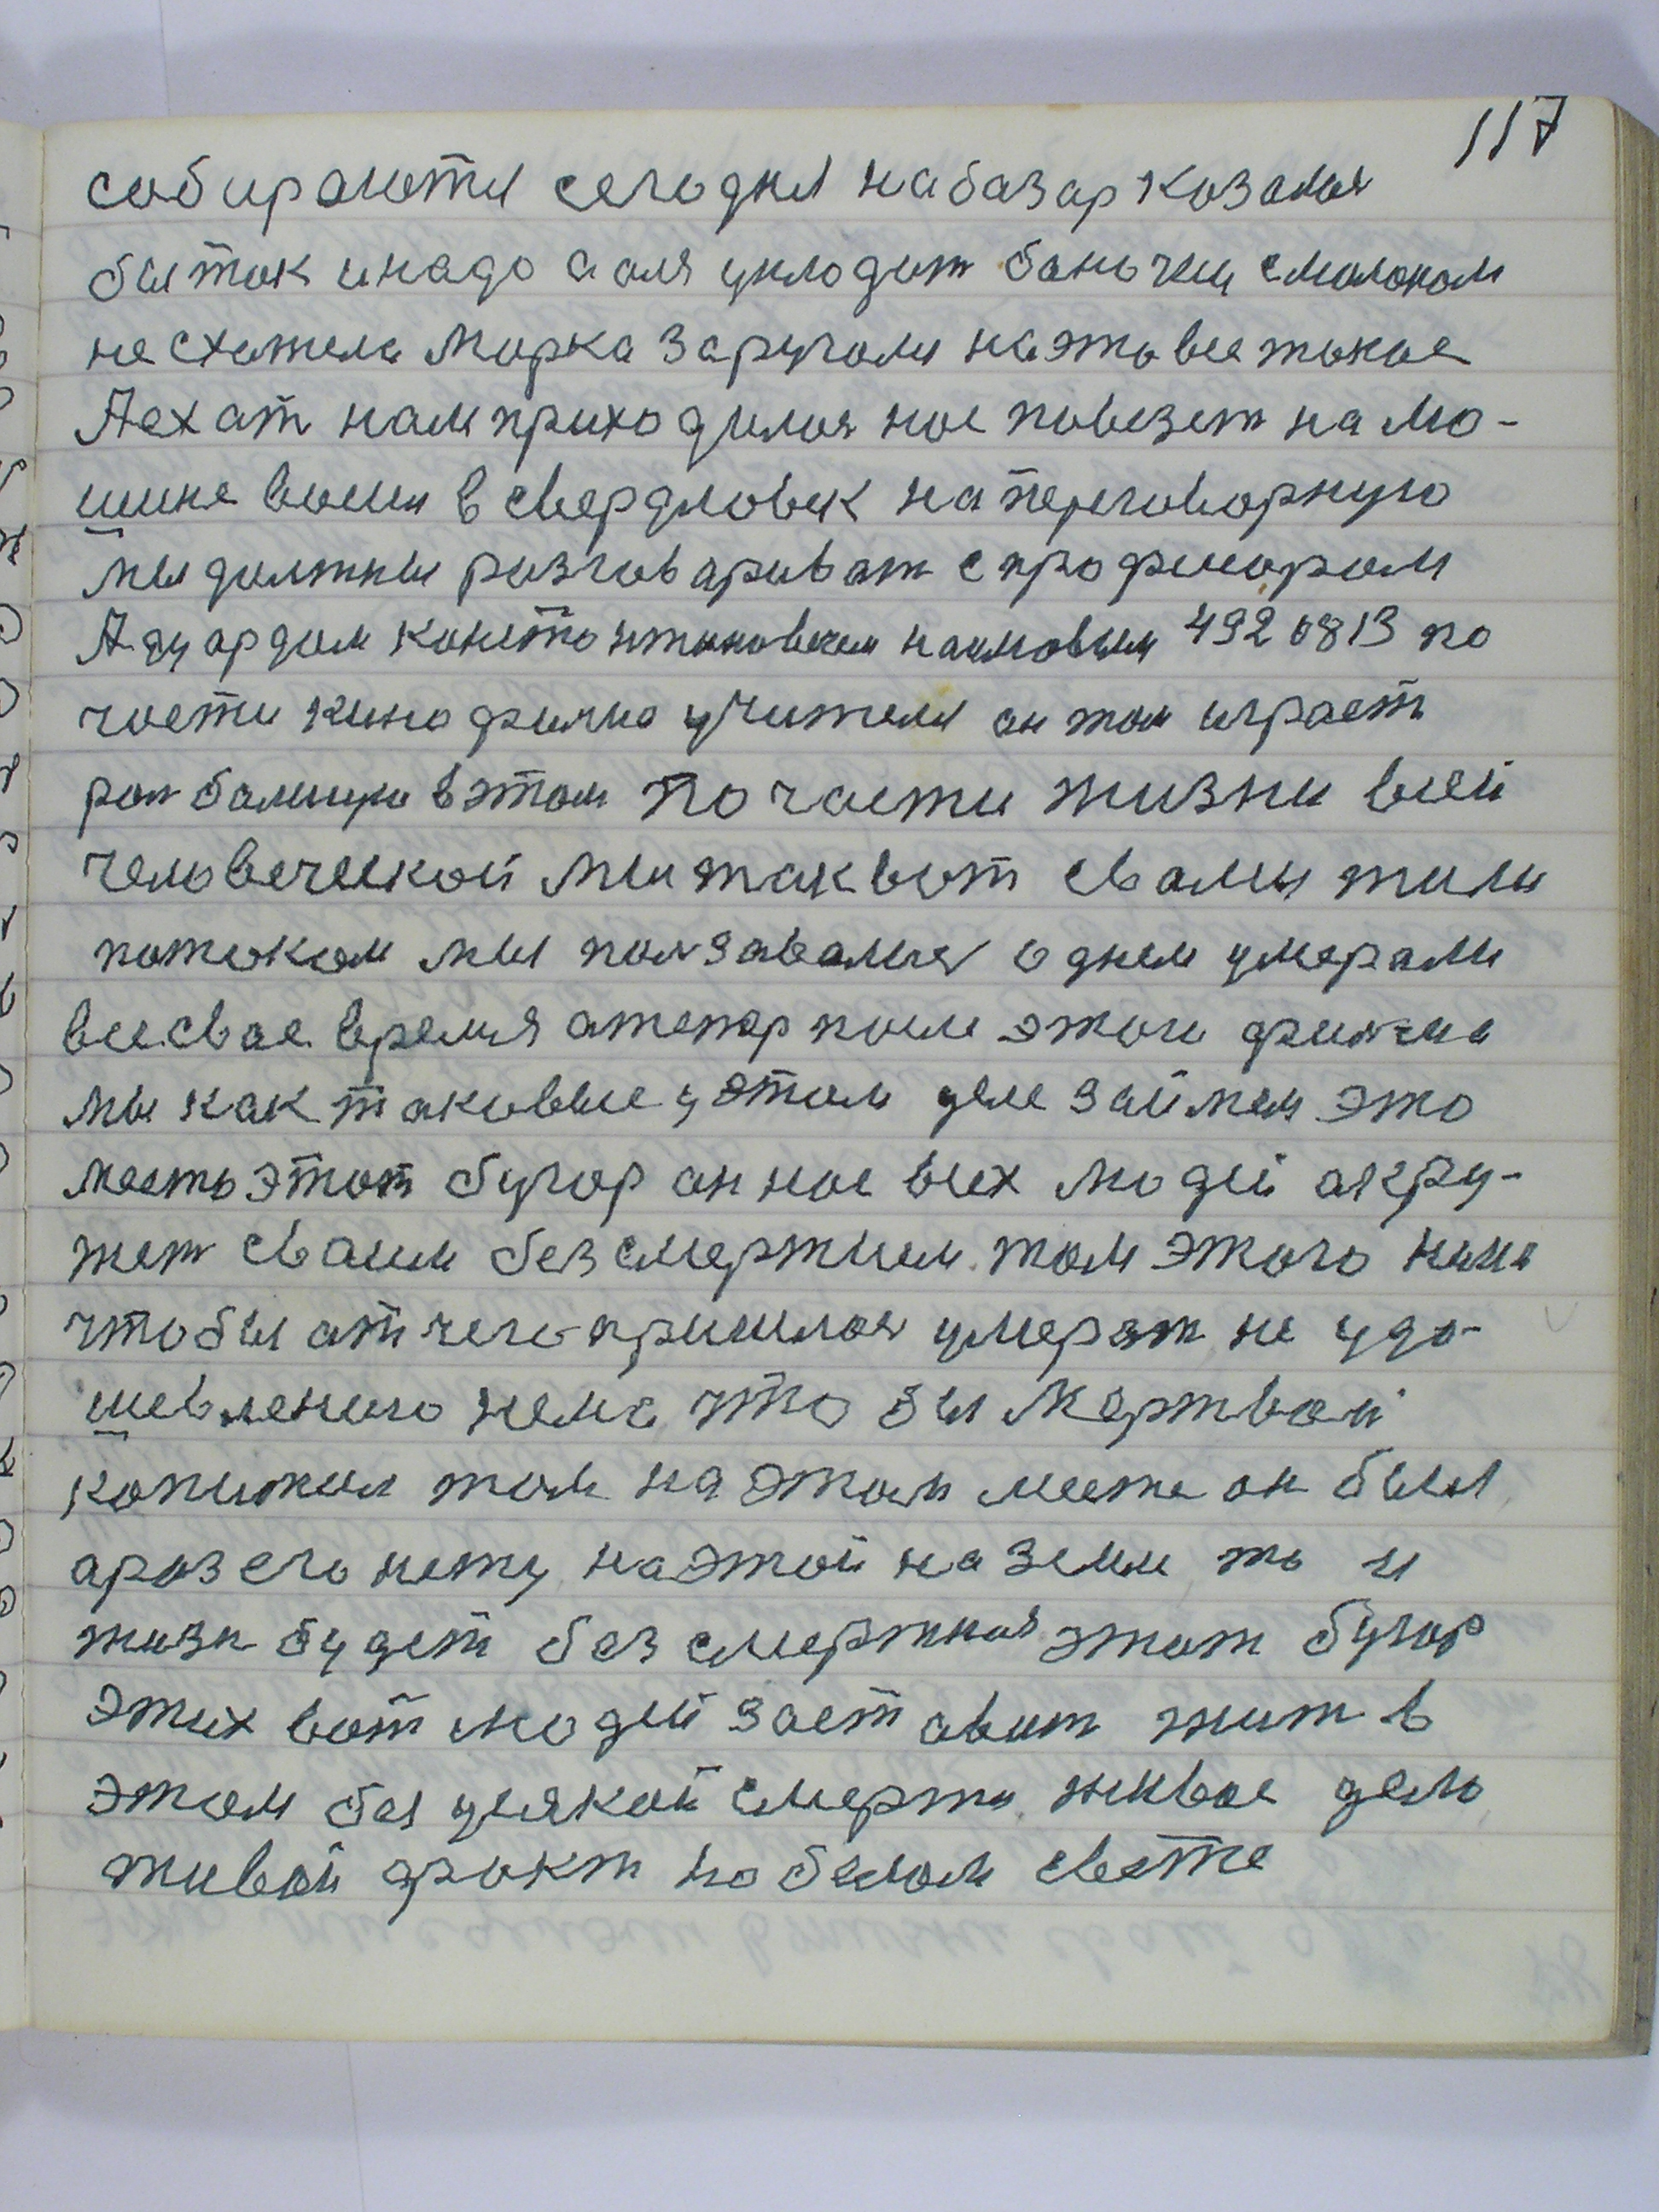 117
собираются сегодня на базар козалоя
бы так и надо а аля уклодит баночки смолоком
не схотела Марка заругали на это все такое
Аехат нам приходился нас повезет на Ма-
шине воеия в свердловск на переговорную
мы должны разговариват с профисором
Адуардом констонтиновичем наумовым 4920813 по
части кинофилма учителя он там играет
рол балшую в этом По части жизни всей
человеческой мы так вот свами жили
потоком мы ползавался однем умерали
все свое время атепер после этого филма
мы как таковые у этом деле займем это
место этот бугор он нас всех людей акру-
жет сваим безсмертием. там этого нима
чтобы атчего пришлося умерат не удо-
шевленого нема что бы Мертвой
копижил там на этом месте он был
араз его нету на этой на земли то и
жизн будет безсмертная этот бугор
этих вот людей заставит жит в
этом без усякой смерти живое дело
живой факт на белом свете